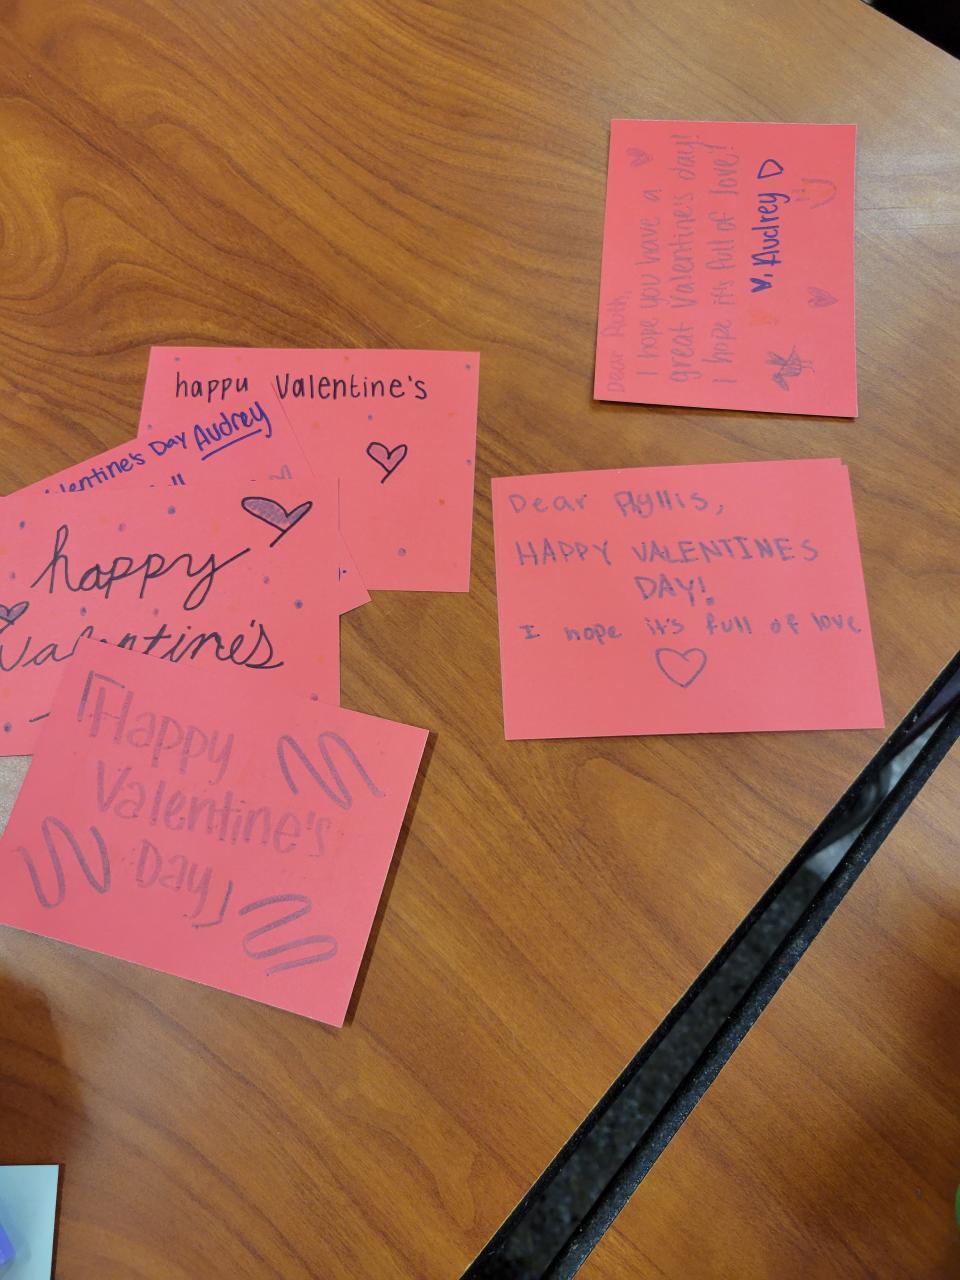 happy Valentine's
Valentine's Day Audrey
happy
Valentine's
Happy
Valentine's
Day
Dear Ruth,
I hope you have a
great Valentine's day!
I hope it's full of love!
Audrey
Dear Phyllis,
HAPPY VALENTINES
DAY!
I hope it's full of love